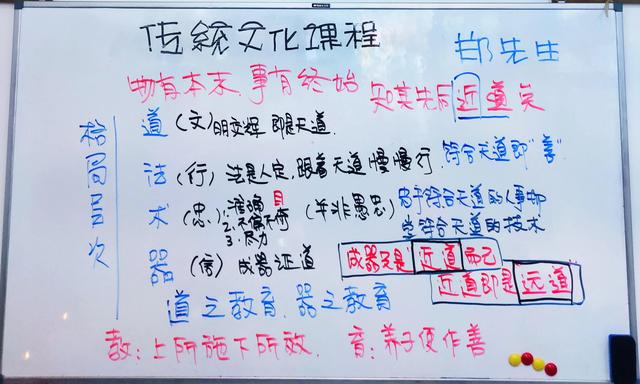 传統文化课程
郎先生
物有本末 事有终始 知其先同近道矣
格局层次
道 (文) 明交辉 即是天道
法 (行) 法是人定,跟着天道慢慢行 符合天道即"善"
术 (忠) 1、准确 目 2、不偏不倚 3、尽力 (并非愚忠) 忠于符合天道的人事物
学符合天道的技术
器 (信) 成器证道 成器只是近道而已
近道即是远道
道之教育 器之教育
教:上所施下所效. 育:养子使作善